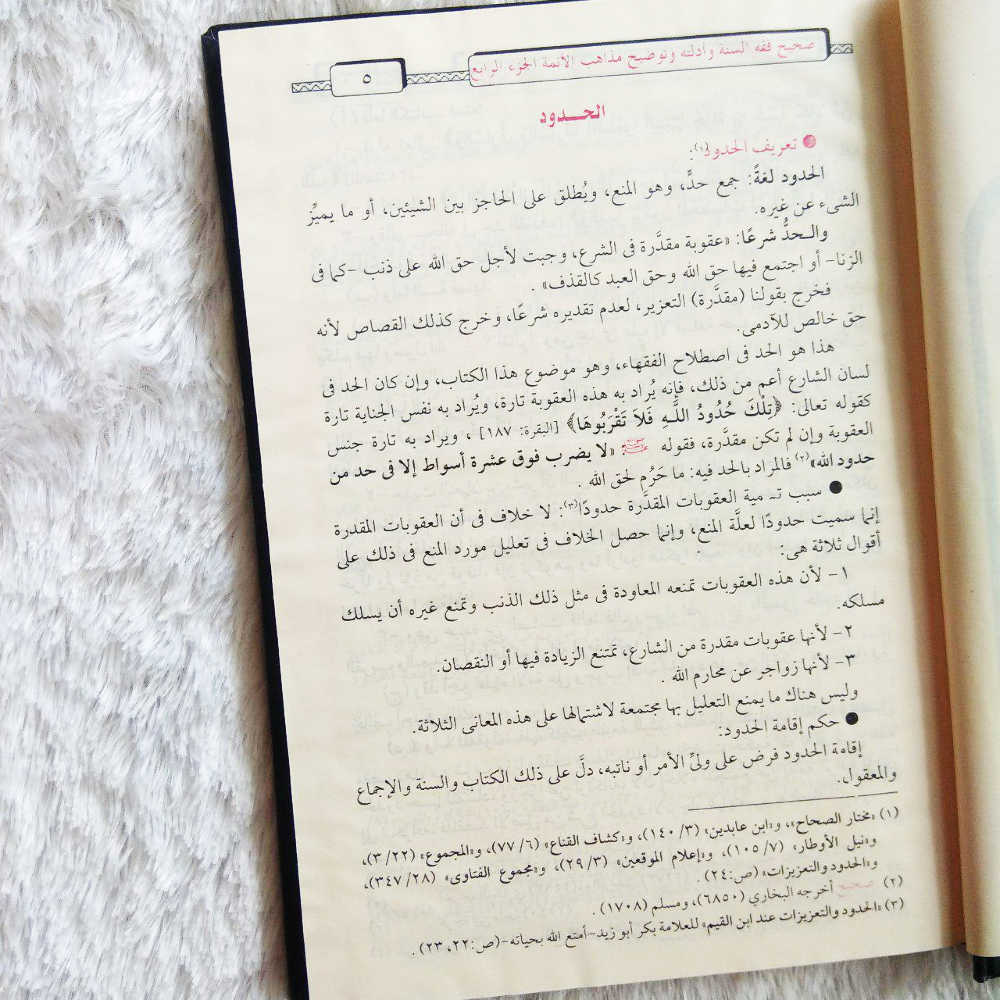 صحيح فقه السنة وأدلته وتوضيح مذاهب الأئمة الجزء الرابع
٥
الحـــدود
● تعريف الحدود(١):
الحدود لغةً: جمع حدٍّ، وهو المنع، ويُطلق على الحاجز بين الشيئين، أو ما يميِّز
الشىء عن غيره.
والـحدُّ شرعًا: «عقوبة مقدَّرة فى الشرع، وجبت لأجل حق الله على ذنب -كما فى
الزنا- أو اجتمع فيها حق الله وحق العبد كالقذف» .
فخرج بقولنا (مقدَّرة) التعزير، لعدم تقديره شرعًا، وخرج كذلك القصاص لأنه
حق خالص للآدمى.
هذا هو الحد فى اصطلاح الفقهاء، وهو موضوع هذا الكتاب، وإن كان الحد فى
لسان الشارع أعم من ذلك، فإنه يُراد به هذه العقوبة تارة، ويُراد به نفس الجناية تارة
كقوله تعالى: ﴿تِلْكَ حُدُودُ اللَّهِ فَلاَ تَقْرَبُوهَا﴾ [البقرة: ١٨٧] ، ويراد به تارة جنس
العقوبة وإن لم تكن مقدَّرة، فقوله ﷺ: «لا يضرب فوق عشرة أسواط إلا فى حد من
حدود الله»(٢) فالمراد بالحد فيه: ما حَرُم لحق الله .
● سبب تـ مية العقوبات المقدَّرة حدودًا(٣): لا خلاف فى أن العقوبات المقدرة
إنما سميت حدودًا لعلَّة المنع، وإنما حصل الخلاف فى تعليل مورد المنع فى ذلك على
أقوال ثلاثة هى:
١- لأن هذه العقوبات تمنعه المعاودة فى مثل ذلك الذنب وتمنع غيره أن يسلك
مسلكه.
٢- لأنها عقوبات مقدرة من الشارع، تمتنع الزيادة فيها أو النقصان.
٣- لأنها زواجر عن محارم الله .
وليس هناك ما يمنع التعليل بها مجتمعة لاشتمالها على هذه المعانى الثلاثة.
● حكم إقامة الحدود:
إقامة الحدود فرض على ولىِّ الأمر أو نائبه، دلَّ على ذلك الكتاب والسنة والإجماع
والمعقول.
(١) «مختار الصحاح»، و«ابن عابدين» (٣/ ١٤٠)، و«كشاف القناع» (٦/ ٧٧)، و«المجموع» (٢٢/ ٣)،
و«نيل الأوطار» (٧/ ١٠٥)، و«إعلام الموقعين» (٣/ ٢٩)، و«مجموع الفتاوى» (٢٨/ ٣٤٧)،
و«الحدود والتعزيزات» (ص: ٢٤) .
(٢) صحيح أخرجه البخاري (٦٨٥٠)، ومسلم (١٧٠٨) .
(٣) «الحدود والتعزيزات عند ابن القيم» للعلامة بكر أبو زيد-أمتع الله بحياته-(ص: ٢٢، ٢٣) .